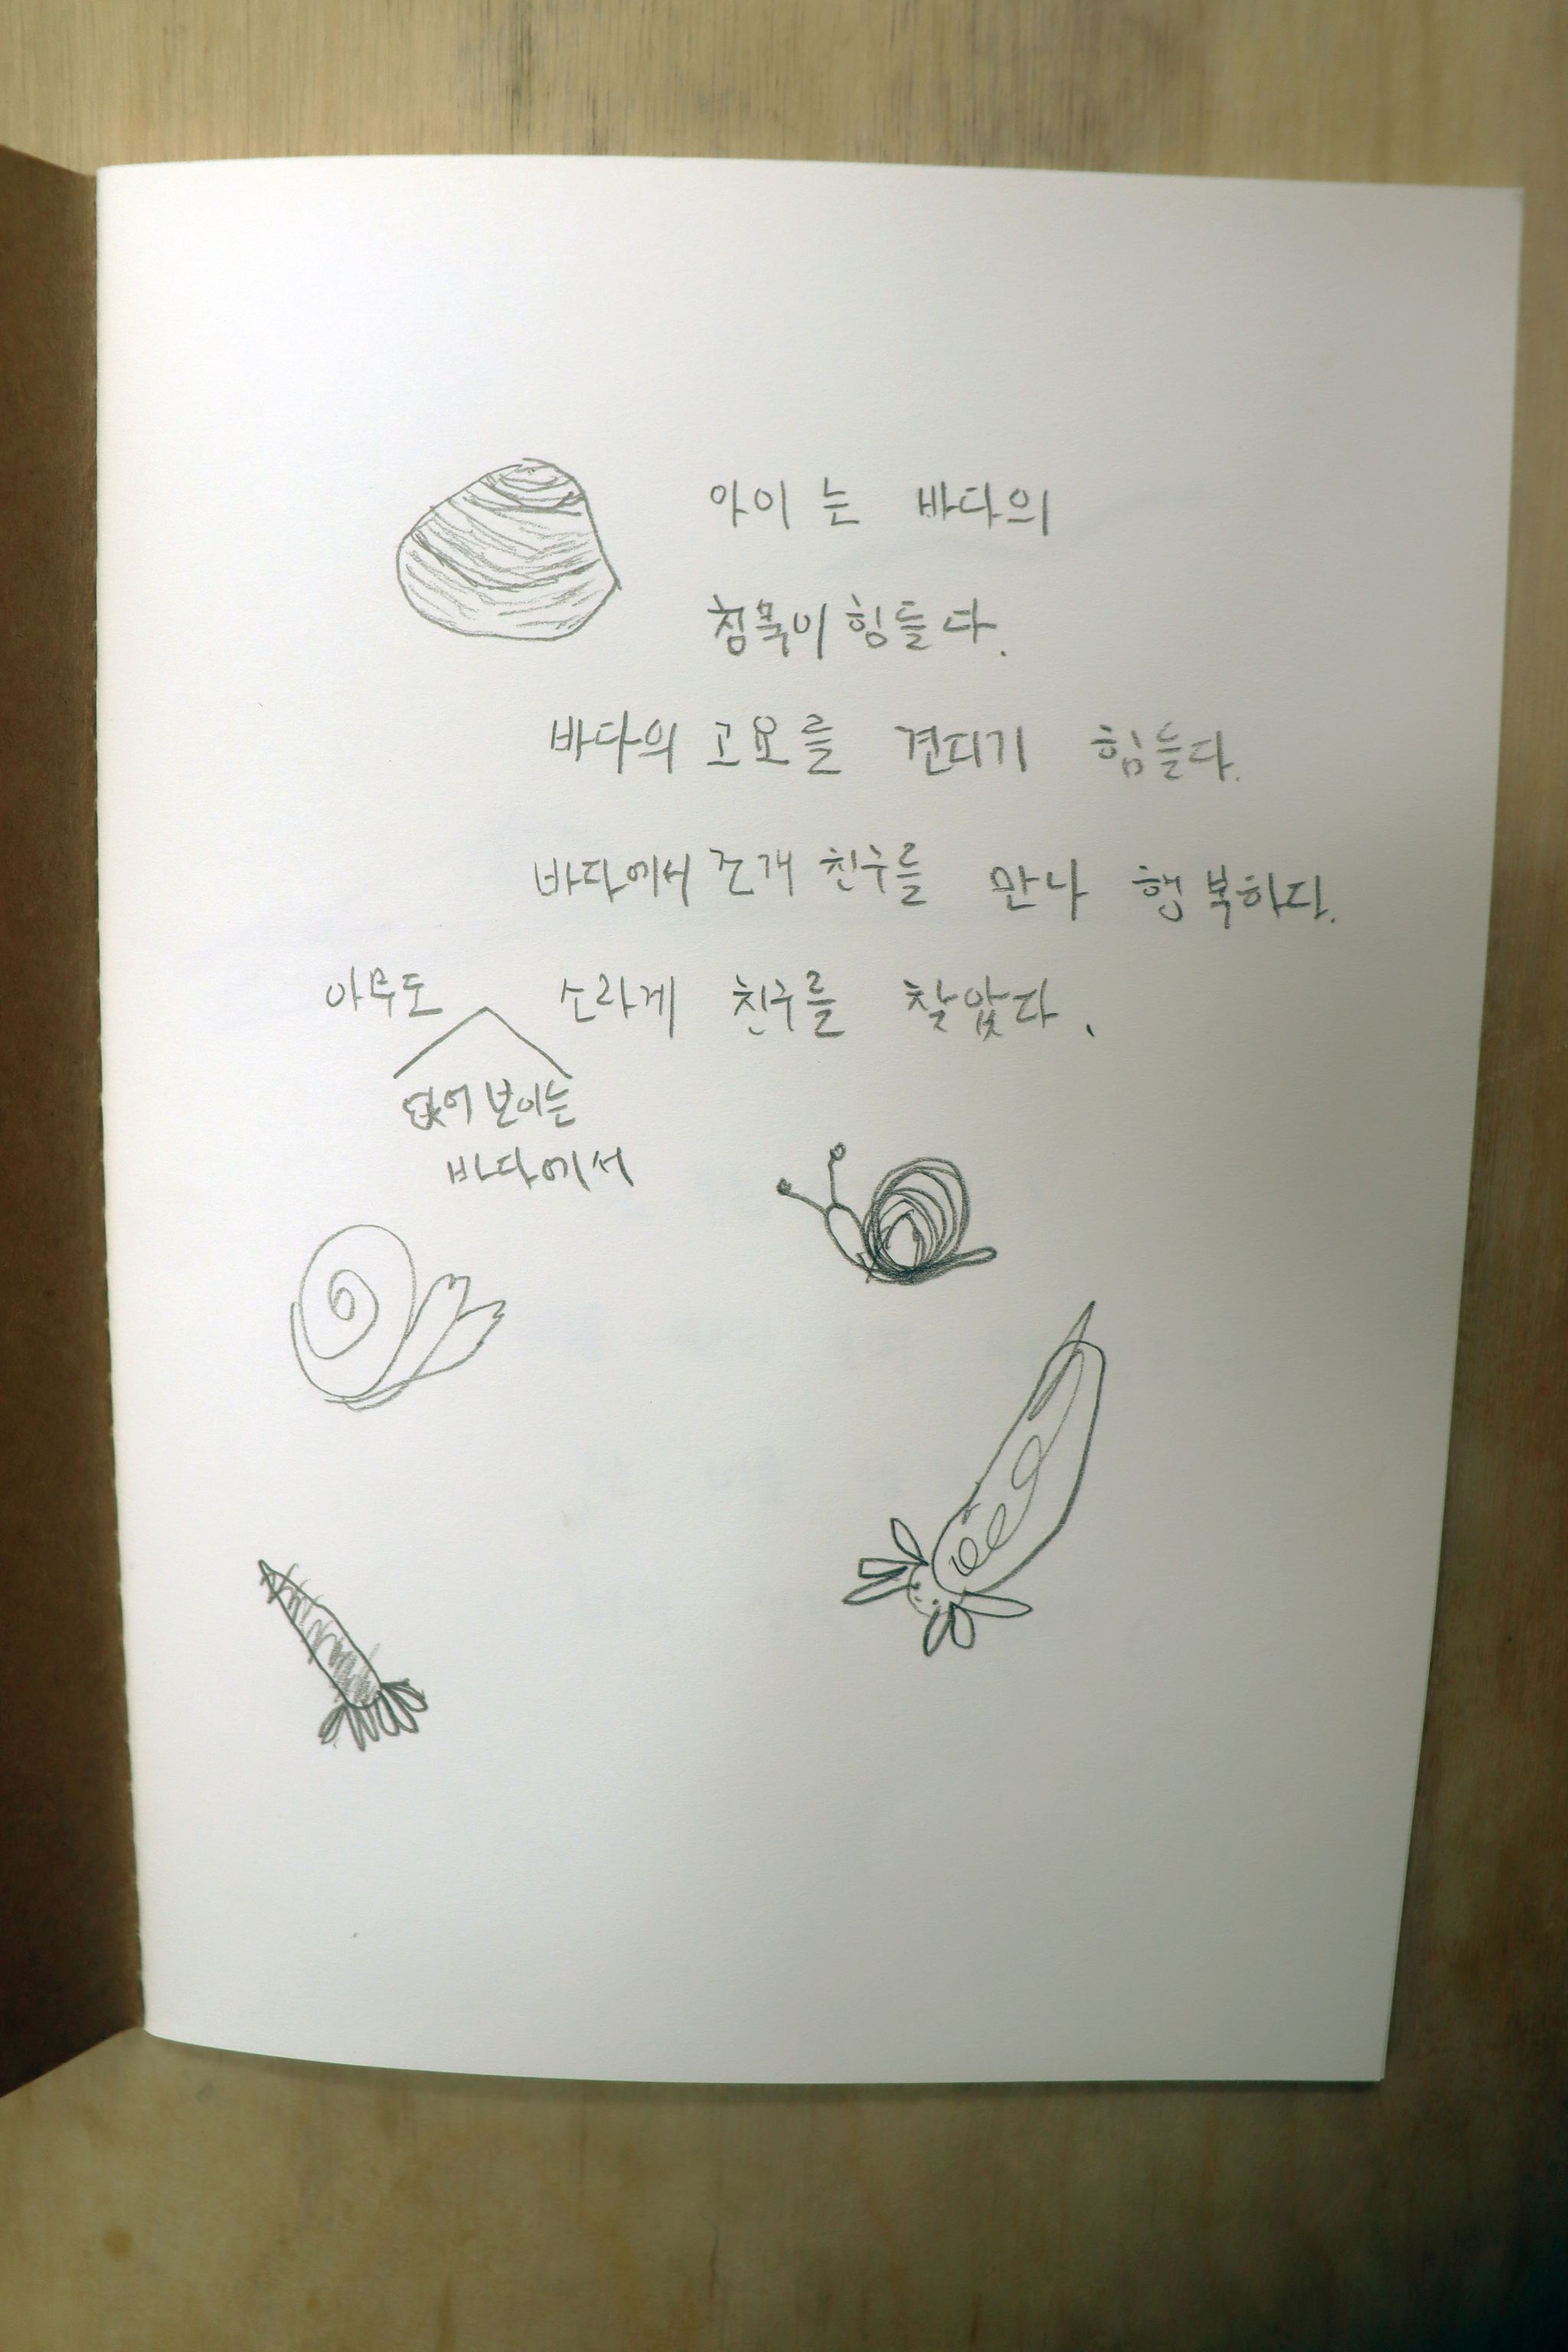 아이는 바다의
침묵이 힘들다.
바다의 고요를 견디기 힘들다.
바다에서 조개 친구를 만나 행복하다.
아무도 소라게 친구를 찾았다.
없어 보이는
바다에서